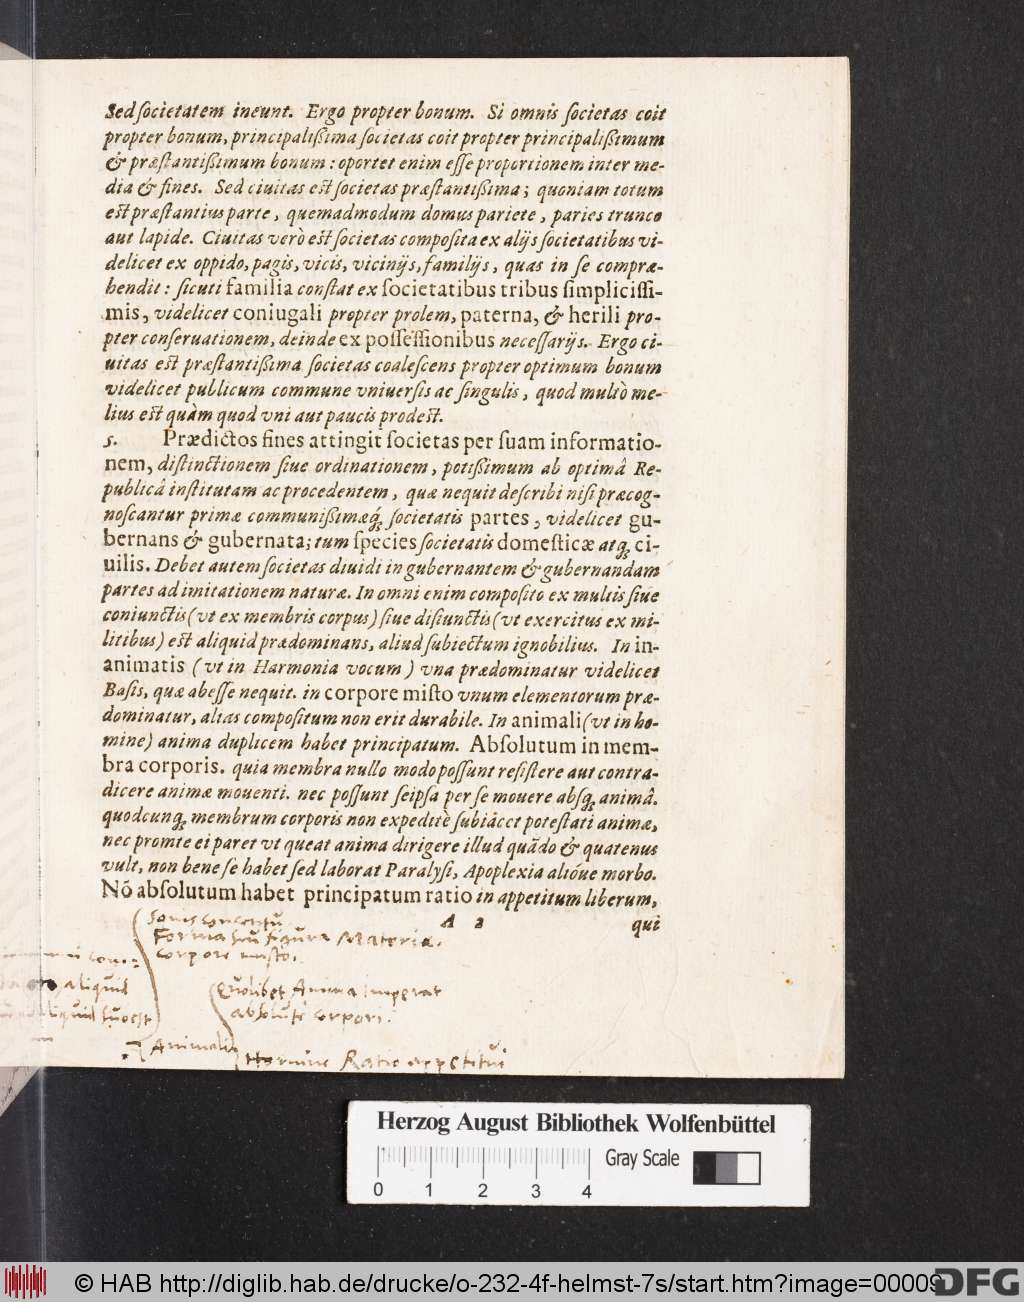 Sed societatem ineunt. Ergo propter bonum. Si omnis societas coit
propter bonum, principalißima societas coit propter principalißimum
& præstantißimum bonum: oportet enim esse proportionem inter me-
dia & fines. Sed ciuitas est societas præstantißima; quoniam totum
est præstantius parte, quemadmodum domus pariete, paries trunco
aut lapide. Ciuitas verò est societas composita ex alijs societatibus vi-
delicet ex oppido, pagis, vicis, vicinijs, familijs, quas in se compræ-
hendit: sicuti familia constat ex societatibus tribus simplicissi-
mis, videlicet coniugali propter prolem, paterna, & herili pro-
pter conseruationem, deinde ex possessionibus necessarijs. Ergo ci-
uitas est præstantißima societas coalescens propter optimum bonum
videlicet publicum commune vniuersis ac singulis, quod multò me-
lius est quàm quod vni aut paucis prodest.
5. Prædictos fines attingit societas per suam informatio-
nem, distinctionem siue ordinationem, potißimum ab optimâ Re-
publicâ institutam ac procedentem, quæ nequit describi nisi præcog-
noscantur primæ communißimæq; societatis partes, videlicet gu-
bernans & gubernata; tum species societatis domesticæ atq; ci-
uilis. Debet autem societas diuidi in gubernantem & gubernandam
partes ad imitationem naturæ. In omni enim composito ex multis siue
coniunctis (vt ex membris corpus) siue disiunctis (vt exercitus ex mi-
litibus) est aliquid prædominans, aliud subiectum ignobilius. In in-
animatis (vt in Harmonia vocum) vna prædominatur videlicet
Basis, quæ abesse nequit. in corpore misto vnum elementorum præ-
dominatur, alias compositum non erit durabile. In animali (vt in ho-
mine) anima duplicem habet principatum. Absolutum in mem-
bra corporis. quia membra nullo modo possunt resistere aut contra-
dicere animæ mouenti. nec possunt seipsa per se mouere absq; animâ.
quodcunq; membrum corporis non expeditè subiàcet potestati animæ,
nec promte ei paret vt queat anima dirigere illud quādo & quatenus
vult, non bene se habet sed laborat Paralysi, Apoplexia alióue morbo.
Nō absolutum habet principatum ratio in appetitum liberum,
A 2 qui
Forma figura Materia.
corpore misto.
aliquid
Quolibet Anima imperat
absolutè corpori.
Animali
Homine Ratio appetitui
Herzog August Bibliothek Wolfenbüttel
Gray Scale
0 1 2 3 4
© HAB http://diglib.hab.de/drucke/o-232-4f-helmst-7s/start.htm?image=00009
DFG